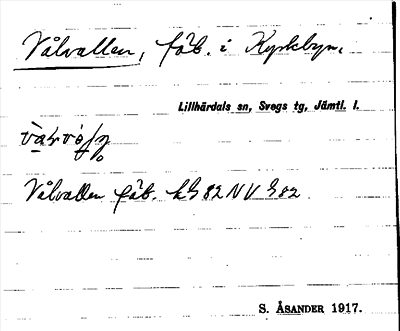 Vålvallen, fäb. i Kyrkbyn,
Lillhärdals sn, Svegs tg, Jämtl. l.
Vålvallen fäb. kG 82 NV G82
S. ÅSANDER 1917.